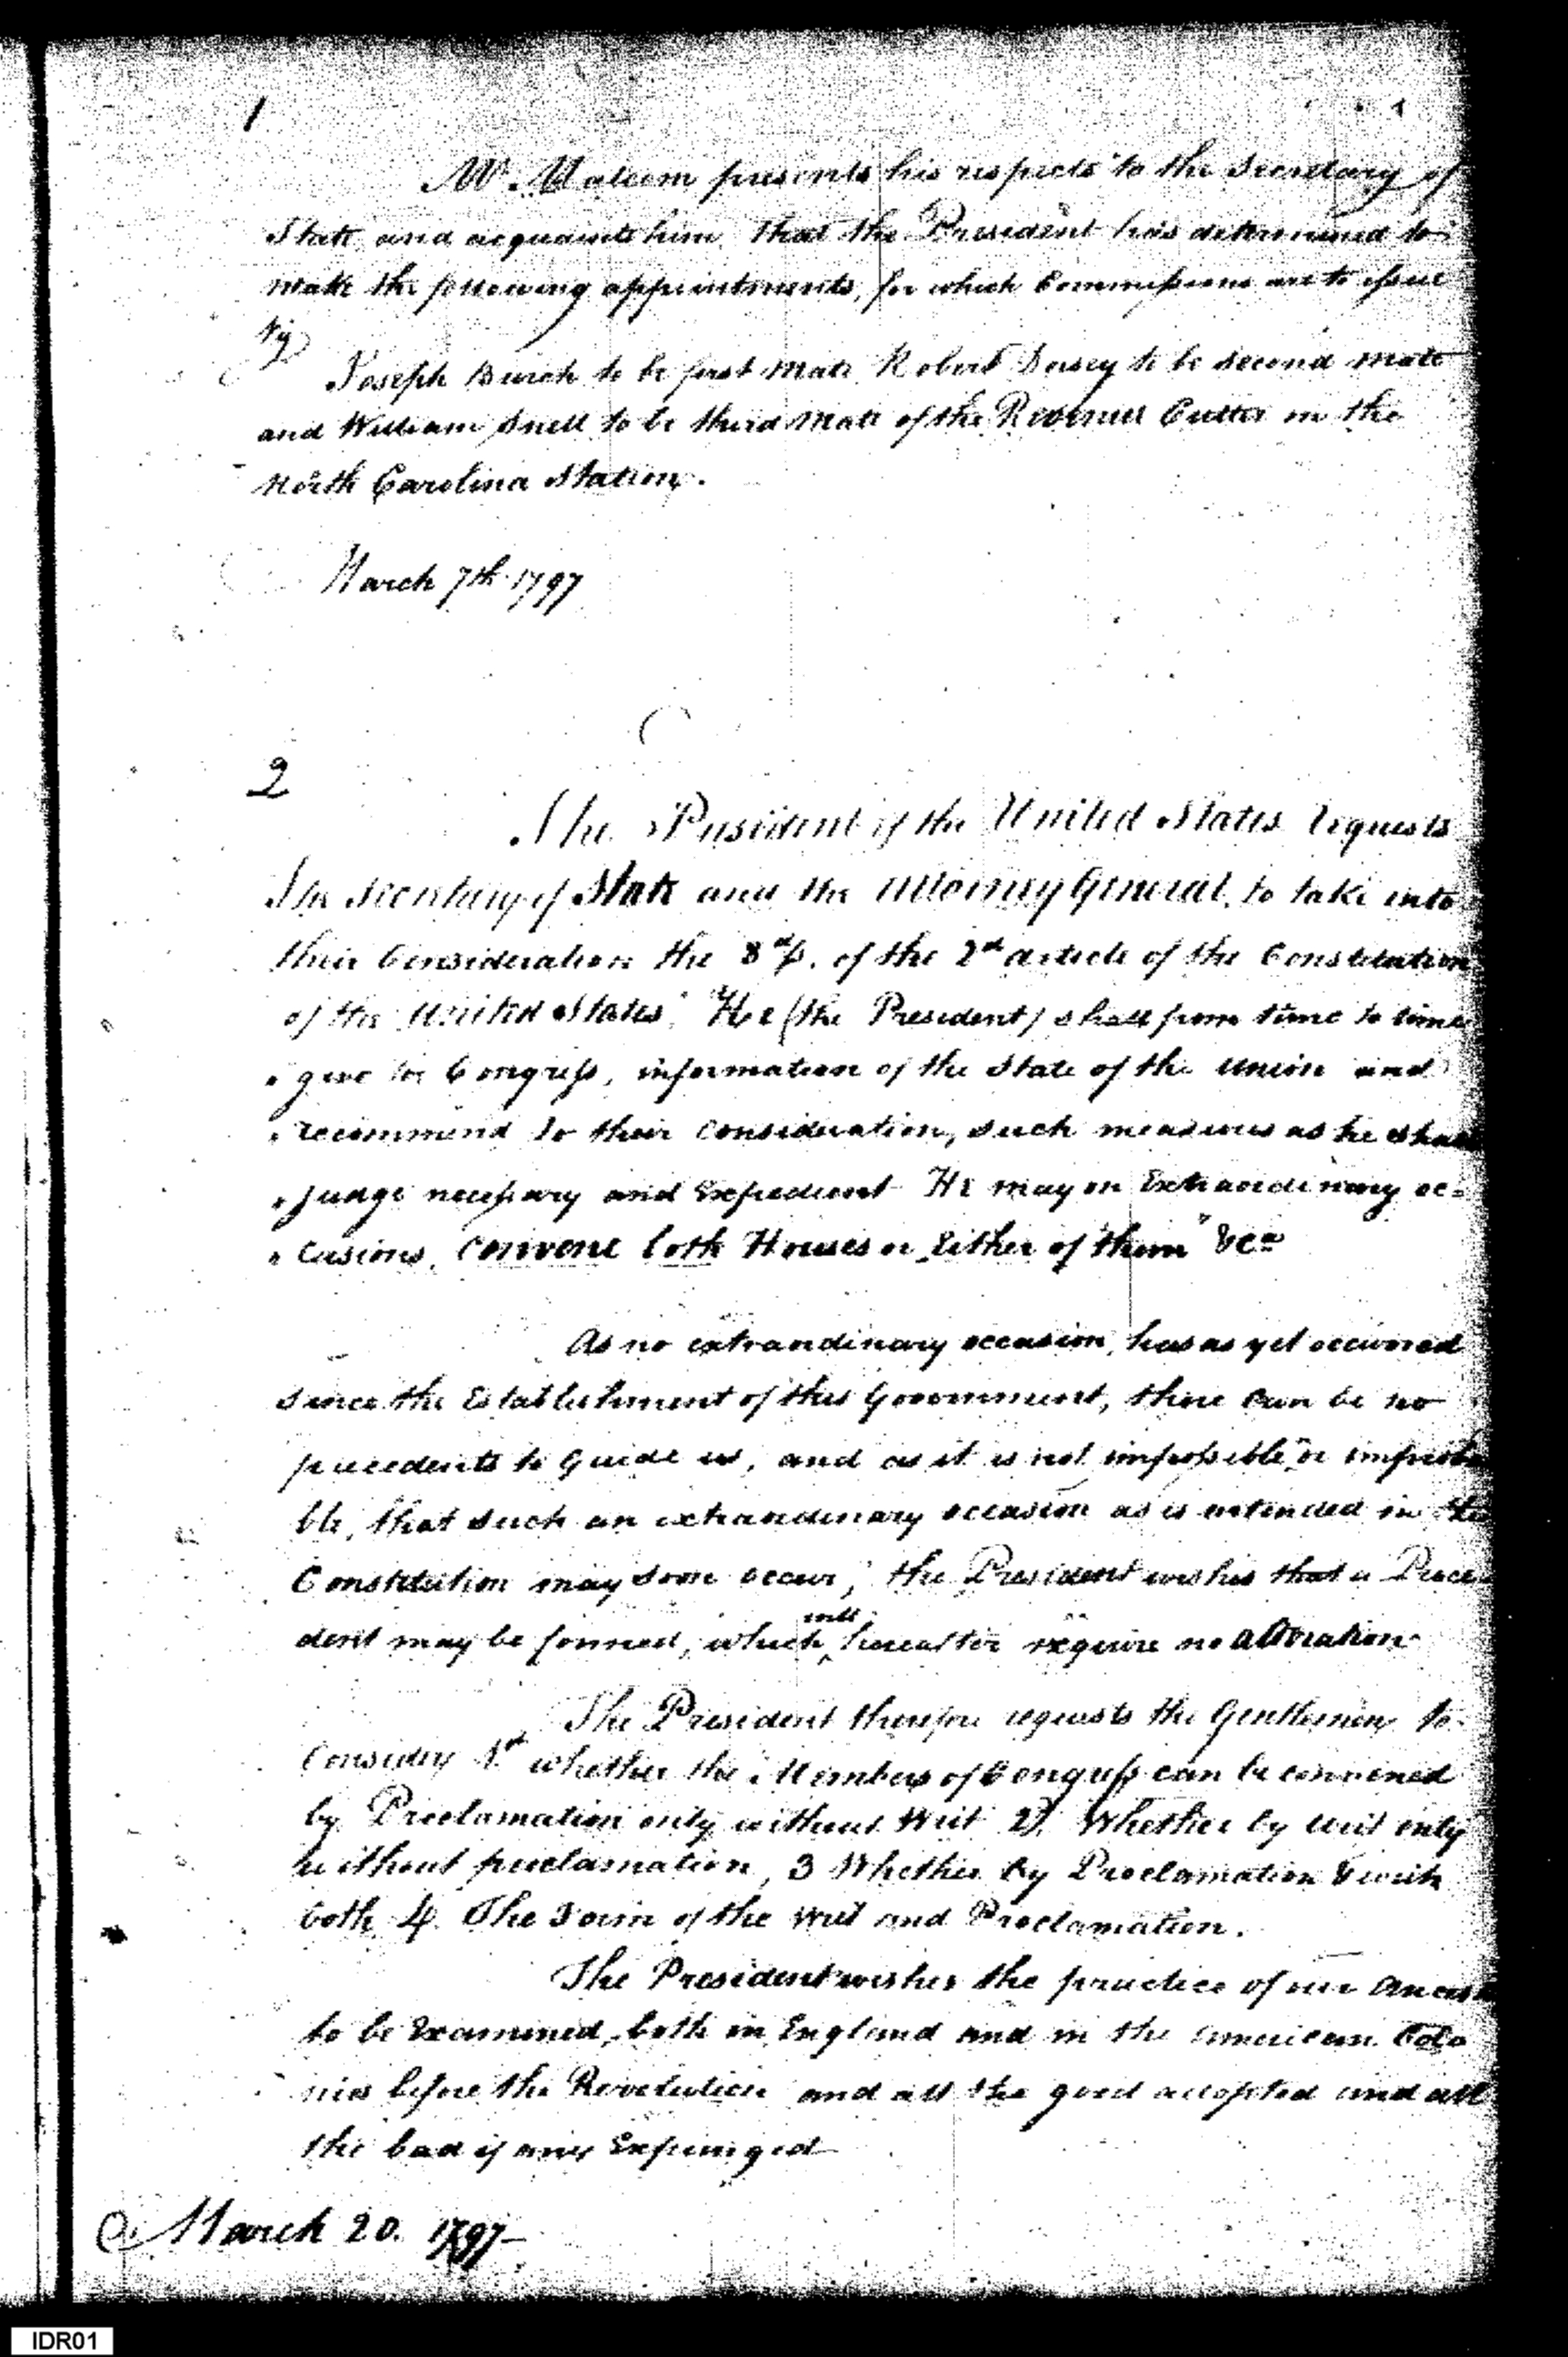 1
Mr. Malcom presents his respects to the Secretary of
State and acquaints him, that the President has determined to
make the following appointments, for which Commissions are to issue
Viz
Joseph Burch to be first mate Robert Dorsey to be second mate
and William Snell to be third mate of the Revenue Cutter in the
North Carolina Station.
March 7th 1797
2
The President of the United States requests
The Secretary of State and the Attorney General, to take into
their Consideration the 8 of the 2d article of the Constitution
of the United States "He (the President) shall from time to time
" give to Congress, information of the State of the Union and
" recommend to their Consideration, such measures as he shall
" judge necessary and Expedient He may on Extraordinary oc=
" casions, convene both Houses or Either of them" &ca
As no extraordinary occasion, has as yet occurred
since the Establishment of this Government, there can be no
precedents to guide us, and as it is not impossible or improba
ble, that such an extraordinary occasion as is intended in the
Constitution may soon occur, the President wishes that a Prece
dent may be formed, which will hereafter require no alteration
The President therefore requests the Gentlemen to
Consider 1st whether the Members of Congress can be convened
by Proclamation only without Writ 2d. Whether by writ only
without proclamation, 3 Whether by Proclamation & writ
both 4. The Form of the Writ and Proclamation.
The President wishes the practice of our
to be Examined, both in England and in the American Colo
nies before the Revolution and all the good adopted and all
the bad if any Expunged
March 20. 1797-
IDR01